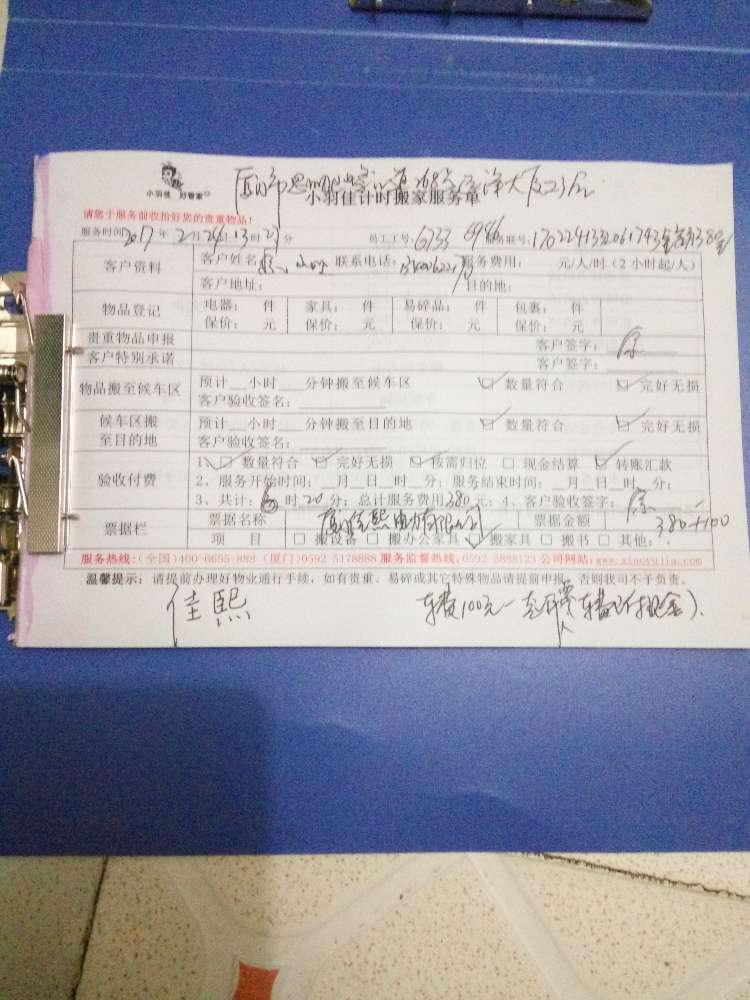 小羽佳 好管家
厦门市思明区 268号 大厦23层
小羽佳计时搬家服务单
请您于服务前收拾好您的贵重物品！
服务时间2017年2月24日13时 分 员工工号：6133 6986 服务联号：
客户资料 客户姓名： 联系电话： 服务费用： 元/人/时（2小时起/人）
客户地址： 目的地：
物品登记 电器： 件 家具： 件 易碎品： 件 包裹： 件
保价： 元 保价： 元 保价： 元 保价： 元
贵重物品申报 客户签字：
客户特别承诺 客户签字：
物品搬至候车区 预计__小时___分钟搬至候车区 ☑ 数量符合 ☑ 完好无损
客户验收签名：
候车区搬至目的地 预计__小时___分钟搬至目的地 ☑ 数量符合 ☑ 完好无损
客户验收签名：
验收付费 1、☑ 数量符合 ☑ 完好无损 ☑ 按需归位 □ 现金结算 ☑ 转账汇款
2、服务开始时间：__月__日__时__分；服务结束时间：__月__日__时__分；
3、共计： 时20分；总计服务费用380元；4、客户验收签字：
票据栏 票据名称 厦门佳熙电力有限公司 票据金额 380+100
项 目 □ 搬设备 □ 搬办公家具 ☑ 搬家具 □ 搬书 □ 其他：
服务热线：(全国)400-6655-888 (厦门)0592-5178888 服务监督热线：0592-5888123 公司网站：www.xiaoyujia.com
温馨提示：请提前办理好物业通行手续，如有贵重、易碎或其它特殊物品请提前申报，否则我司不予负责。
佳熙 车费100元 车费已付现金）.